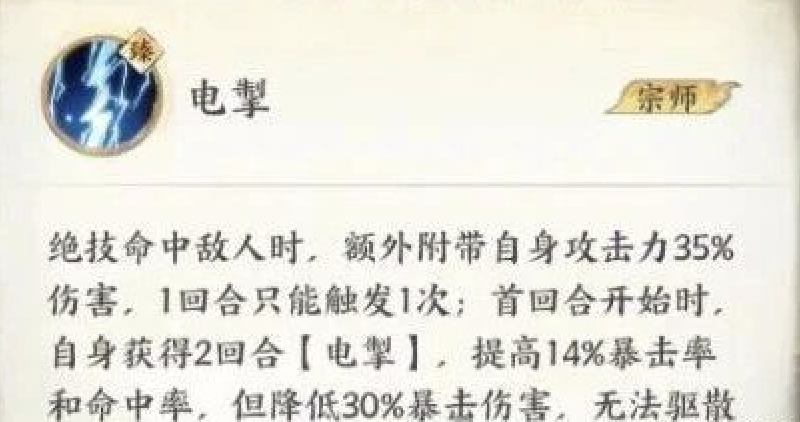 臻
电掣
宗师
绝技命中敌人时，额外附带自身攻击力35%
伤害，1回合只能触发1次；首回合开始时，
自身获得2回合【电掣】，提高14%暴击率
和命中率，但降低30%暴击伤害，无法驱散